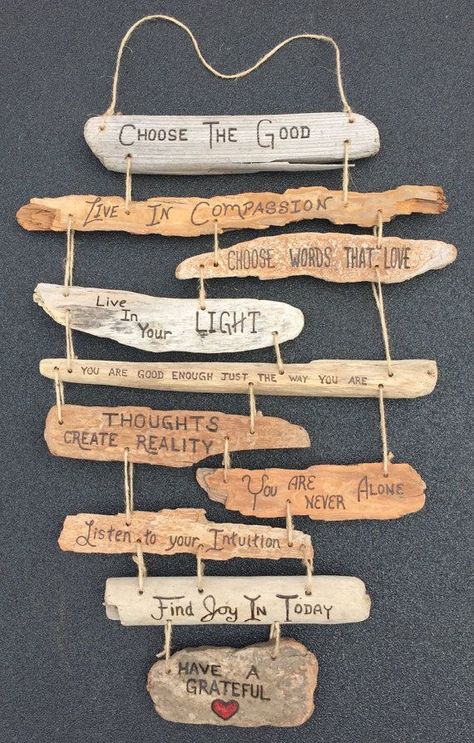 CHOOSE THE GOOD
LIVE IN COMPASSION
CHOOSE WORDS THAT LOVE
Live
In
Your LIGHT
YOU ARE GOOD ENOUGH JUST THE WAY YOU ARE
THOUGHTS
CREATE REALITY
YOU ARE
NEVER ALONE
Listen to your Intuition
Find Joy In Today
HAVE A
GRATEFUL